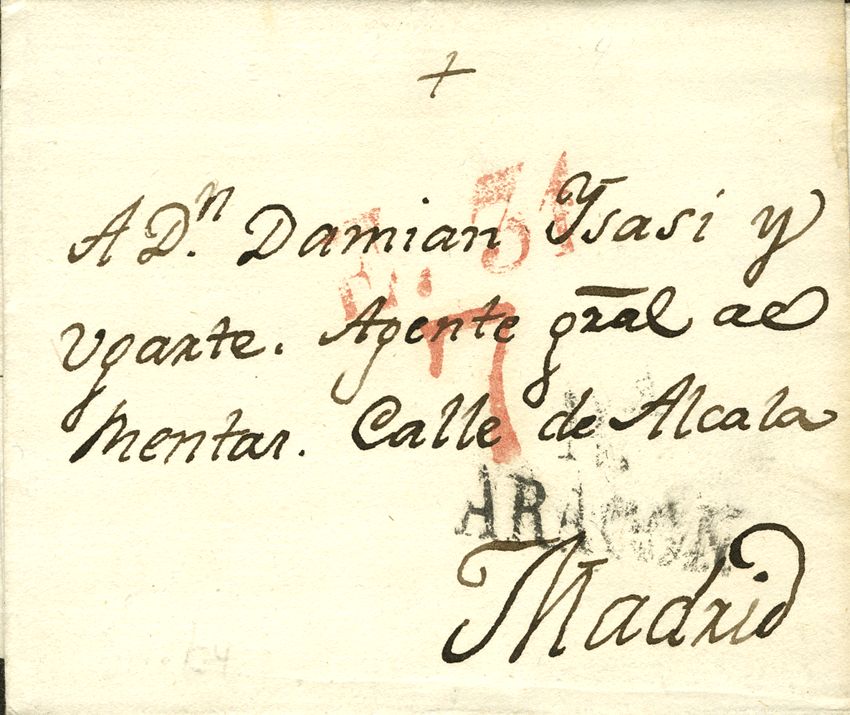 +
A D.ⁿ Damian Ysasi y
Vgarte. Agente gral ae
Mentar. Calle de Alcala
ARAGON
Madrid
7